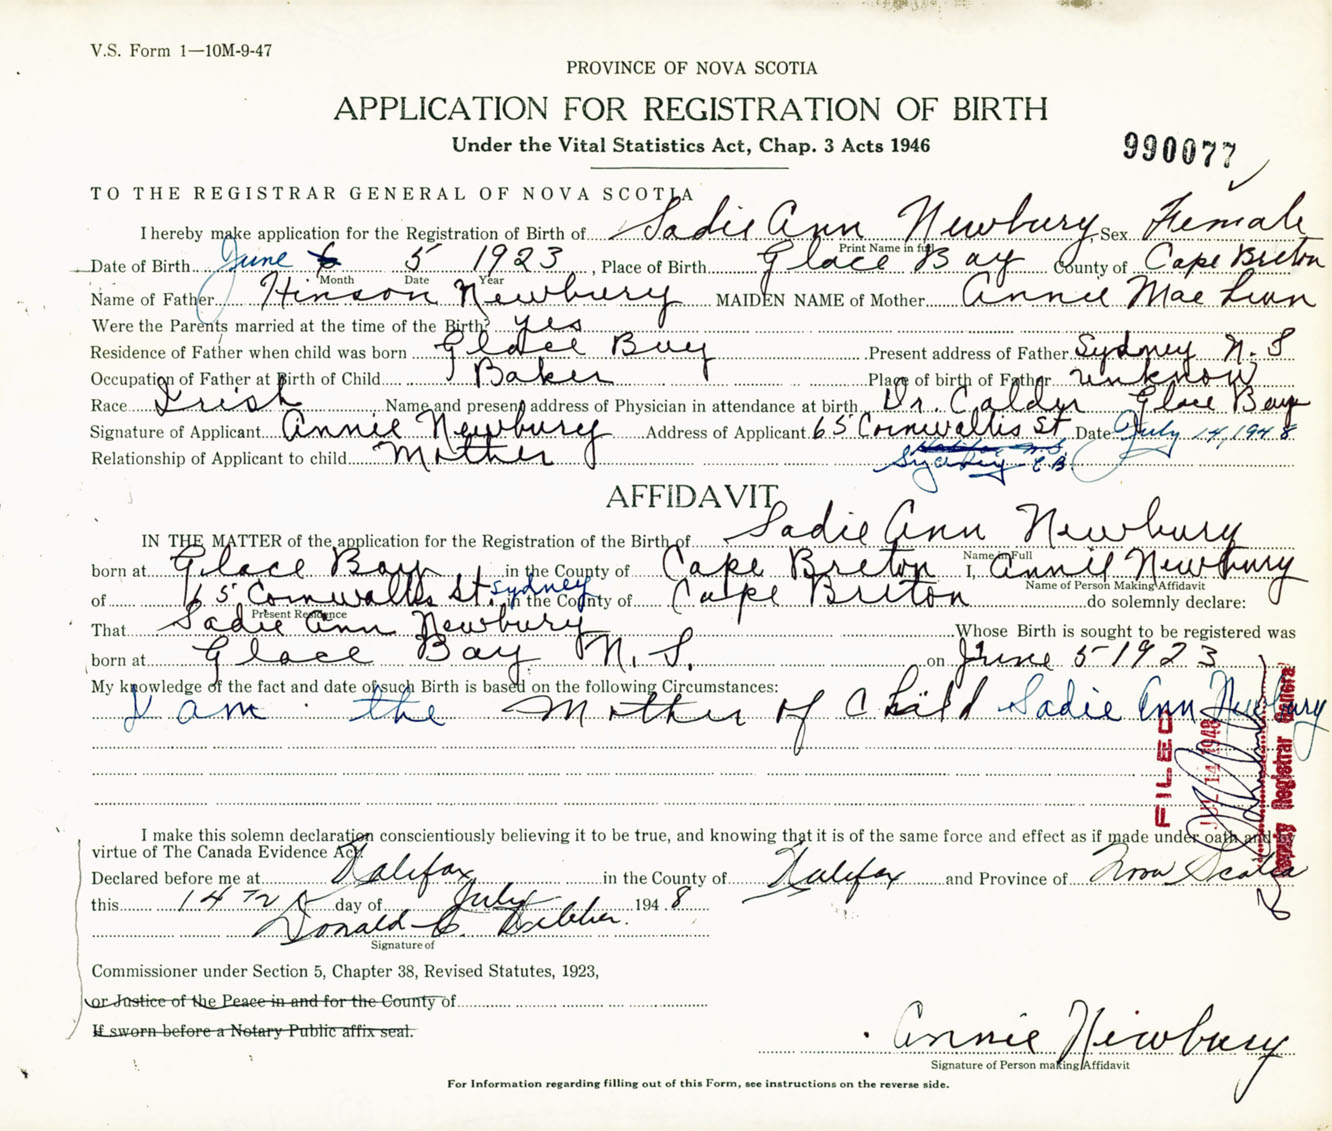 V.S. Form 1—10M-9-47
PROVINCE OF NOVA SCOTIA
APPLICATION FOR REGISTRATION OF BIRTH
Under the Vital Statistics Act, Chap. 3 Acts 1946
990077
TO THE REGISTRAR GENERAL OF NOVA SCOTIA
I hereby make application for the Registration of Birth of Sadie Ann Newbury, Sex Female
Print Name in full
Date of Birth June 5 1923, Place of Birth Glace Bay County of Cape Breton
Month Date Year
Name of Father Hinson Newbury MAIDEN NAME of Mother Annie Mae
Were the Parents married at the time of the Birth? yes
Residence of Father when child was born Glace Bay Present address of Father Sydney N.S
Occupation of Father at Birth of Child Baker Place of birth of Father unknow
Race Irish Name and present address of Physician in attendance at birth Dr. Calder Glace Bay
Signature of Applicant Annie Newbury Address of Applicant 65 Cornwallis St Date July 14, 1948
Relationship of Applicant to child Mother Sydney C B
AFFIDAVIT
IN THE MATTER of the application for the Registration of the Birth of Sadie Ann Newbury
Name in Full
born at Glace Bay in the County of Cape Breton I, Annie Newbury
Name of Person Making Affidavit
of 65 Cornwallis St. Sydney in the County of Cape Breton do solemnly declare:
Present Residence
That Sadie Ann Newbury Whose Birth is sought to be registered was
born at Glace Bay N.S. on June 5 1923
My knowledge of the fact and date of such Birth is based on the following Circumstances:
I am the Mother of Child Sadie Ann Newbury
FILED
JUL 14 1948
Deputy Registrar General
I make this solemn declaration conscientiously believing it to be true, and knowing that it is of the same force and effect as if made under oath and by
virtue of The Canada Evidence Act.
Declared before me at Halifax in the County of Halifax and Province of Nova Scotia
this 14 TH day of July 1948
Donald C.
Signature of
Commissioner under Section 5, Chapter 38, Revised Statutes, 1923,
or Justice of the Peace in and for the County of
If sworn before a Notary Public affix seal.
Annie Newbury
Signature of Person making Affidavit
For Information regarding filling out of this Form, see instructions on the reverse side.